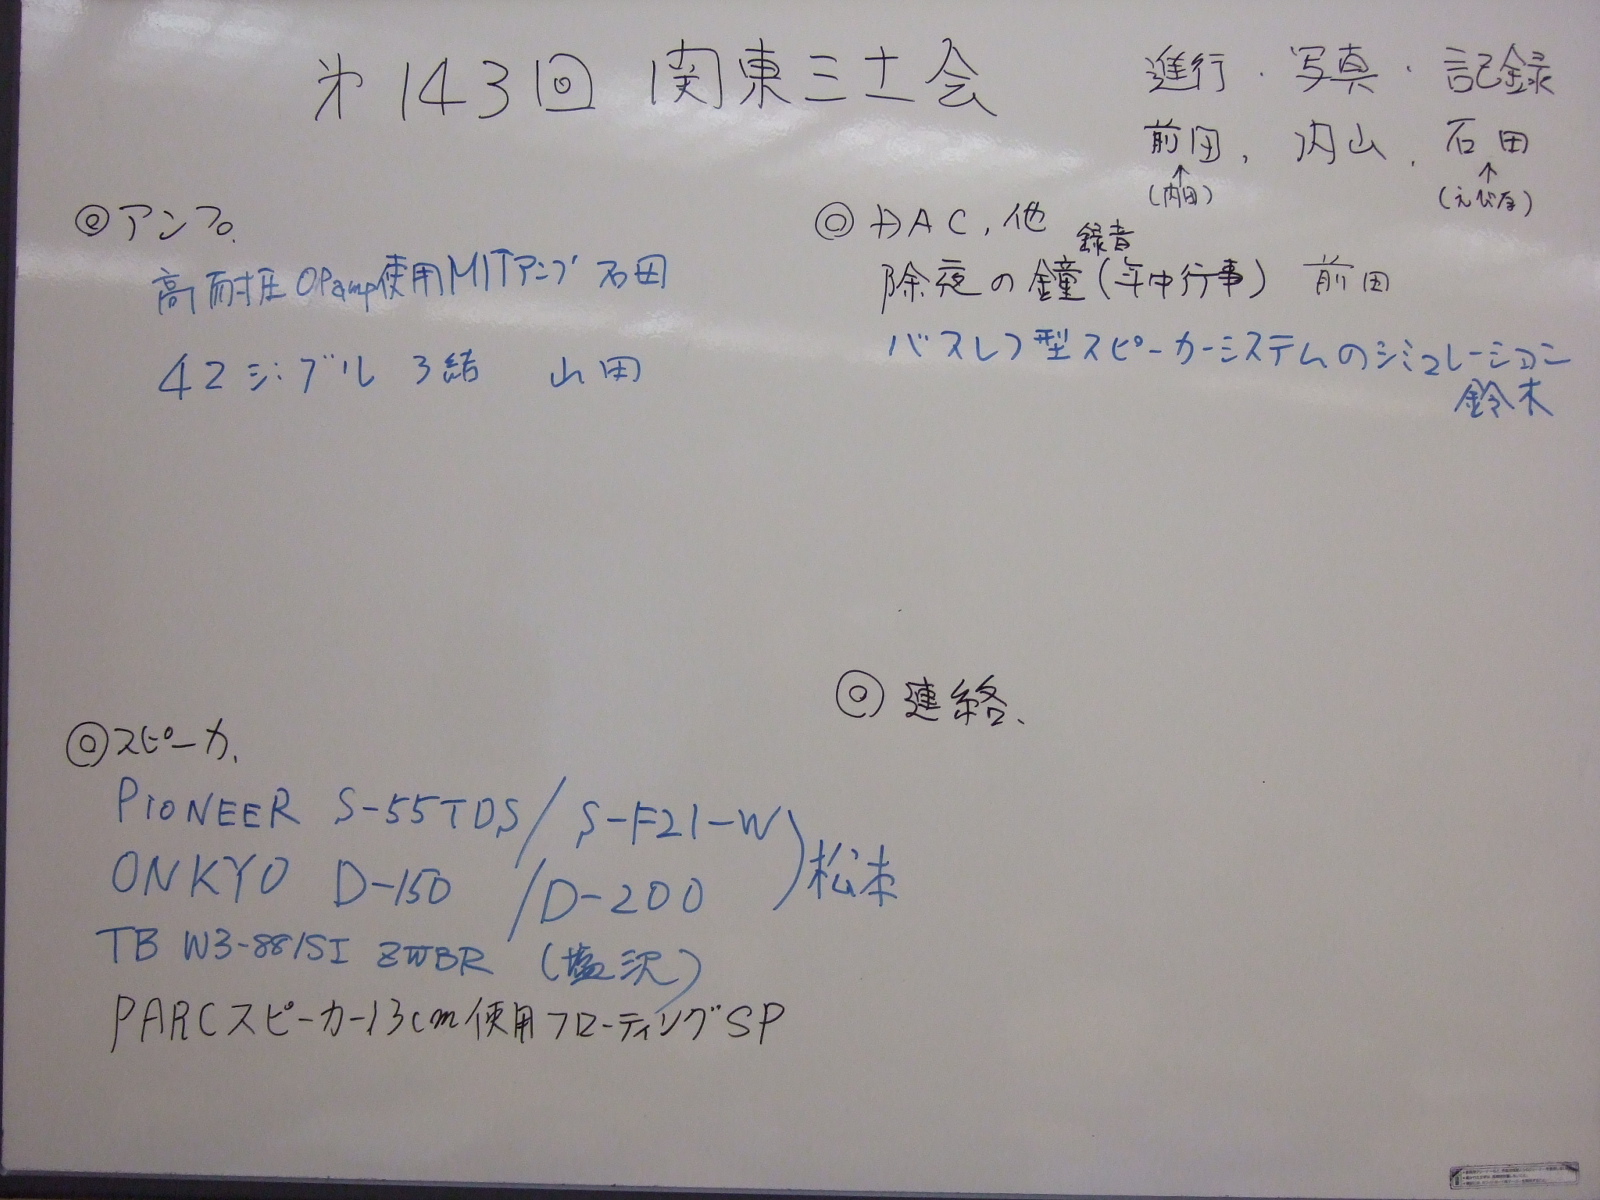 第143回 関東三土会
進行・写真・記録
前田、内山、石田
(内田) (えびな)
◎アンプ、
高耐圧OPamp使用MITアンプ 石田
42シングル 3結 山田
◎DAC、他
録音
除夜の鐘(年中行事) 前田
バスレフ型スピーカーシステムのシミュレーション
鈴木
◎スピーカ、
PIONEER S-55TDS/S-F21-W
ONKYO D-150/D-200
松本
TB W3-881SI ZWBR (塩沢)
PARCスピーカー13cm使用フローティングSP
◎連絡、